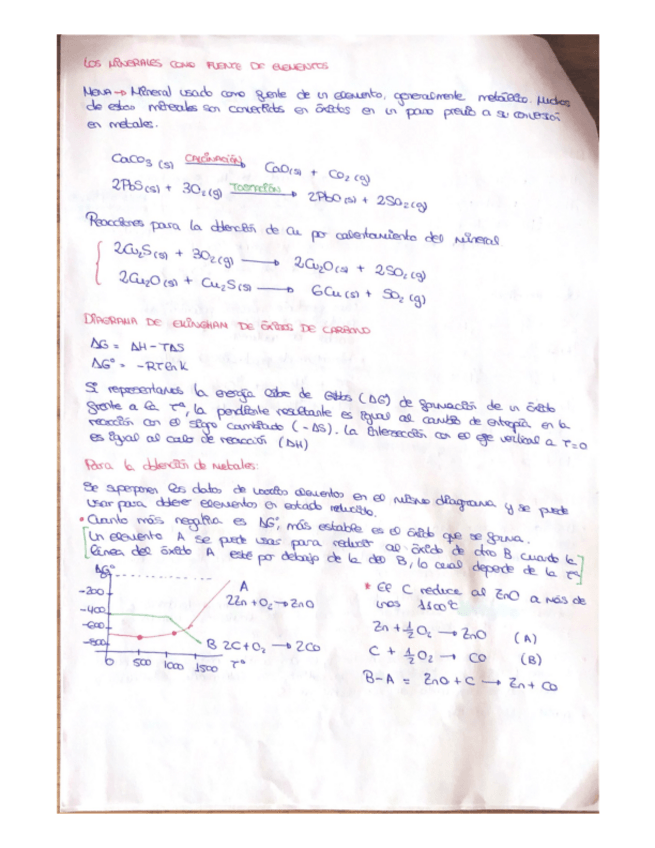 LOS MINERALES COMO FUENTE DE ELEMENTOS
MENA → Mineral usado como fuente de un elemento, generalmente metálico. Muchos
de estos minerales son convertidos en óxidos en un paso previo a su conversión
en metales.
CaCO3 (s) CALCINACIÓN→ CaO(s) + CO2 (g)
2PbS(s) + 3O2(g) TOSTACIÓN→ 2PbO(s) + 2SO2(g)
Reacciones para la obtención de Cu por calentamiento del mineral
2Cu2S(s) + 3O2(g) → 2Cu2O(s) + 2SO2(g)
2Cu2O(s) + Cu2S(s) → 6Cu(s) + SO2(g)
DIAGRAMA DE ELLINGHAM DE ÓXIDOS DE CARBONO
ΔG = ΔH - TΔS
ΔG° = -RTlnK
Si representamos la energía libre de Gibbs (ΔG) de formación de un óxido
frente a la Tª, la pendiente resultante es igual al cambio de entropía en la
reacción con el signo cambiado (-ΔS). La intersección con el eje vertical a T=0
es igual al calor de reacción (ΔH)
Para la obtención de metales:
Se superponen los datos de varios elementos en el mismo diagrama y se puede
usar para obtener elementos en estado reducido.
• Cuanto más negativa es ΔG°, más estable es el óxido que se forma.
[Un elemento A se puede usar para reducir al óxido de otro B cuando la
línea del óxido A esté por debajo de la de B, lo cual depende de la Tª]
ΔG°
0
-200
-400
-600
-800
0 500 1000 1500 Tª
A
2Zn + O2 → ZnO
B 2C + O2 → 2CO
* El C reduce al ZnO a más de
unos 1100°C
Zn + 1/2 O2 → ZnO (A)
C + 1/2 O2 → CO (B)
B-A = ZnO + C → Zn + CO